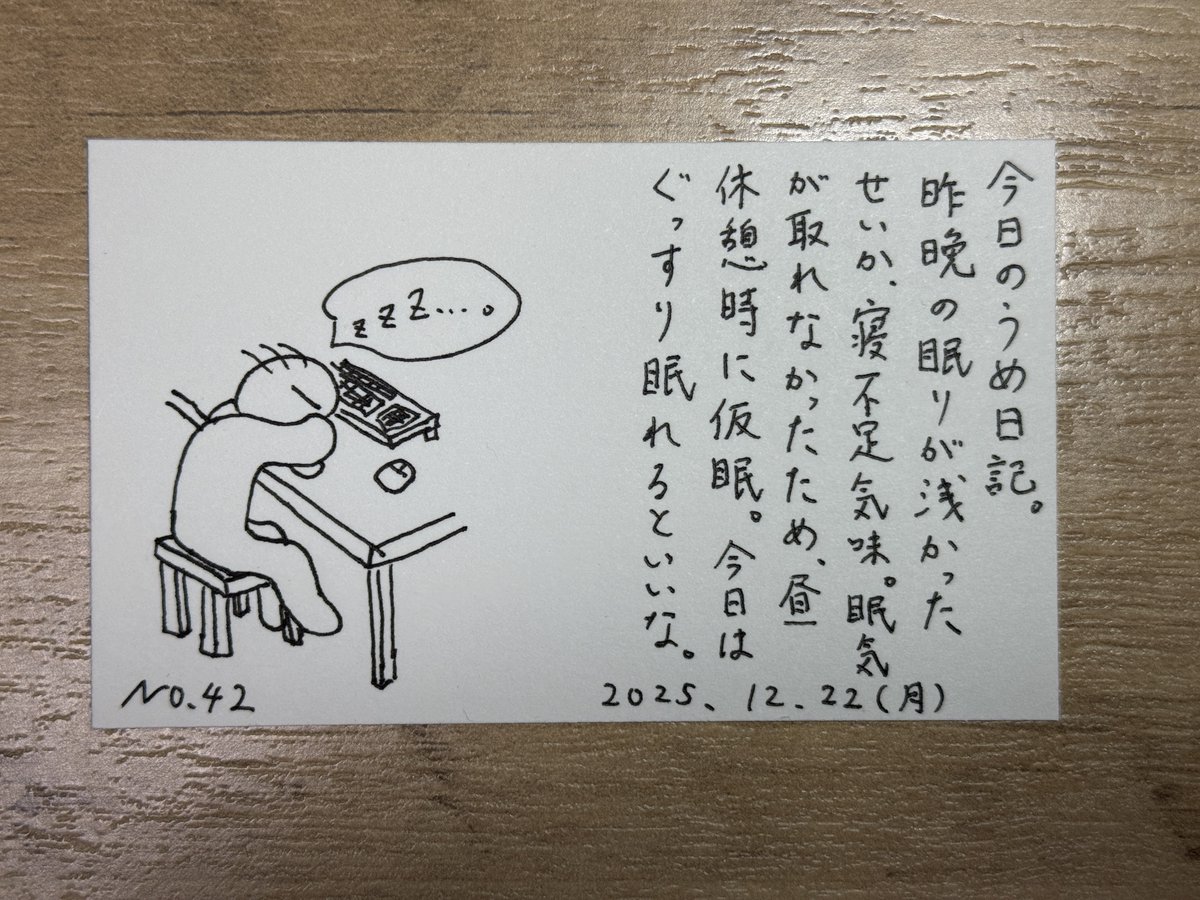 今日のうめ日記。
昨晩の眠りが浅かった
せいか、寝不足気味。眠気
が取れなかったため、昼
休憩時に仮眠。今日は
ぐっすり眠れるといいな。
z z Z....。
No.42
2025、12.22(月)